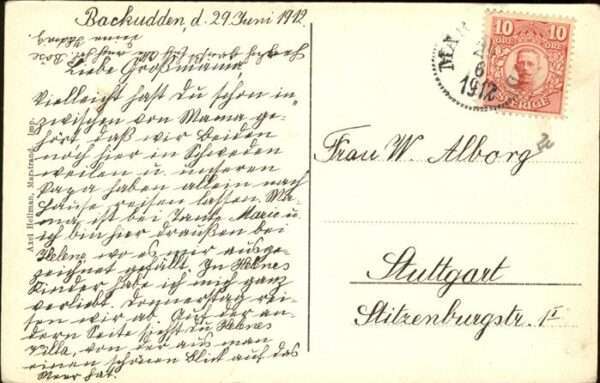 Backudden, d. 29 Juni 1912.
Liebe Großmama,
Vielleicht hast Du schon in-
zwischen von Mama ge-
hört, daß wir beiden
noch hier in Schweden
weilen u. unseren
Papa haben allein nach
Hause reisen lassen. Ma-
ma ist bei Tante Marie u.
ich bin hier draußen bei
Helene wo es mir ausge-
zeichnet gefällt. In Helenes
Kinder habe ich mich ganz
verliebt. Donnerstag rei-
sen wir ab. Auf der an-
dern Seite siehst Du Helenes
Villa, von der aus man
einen schönen Blick auf das
Meer hat.
Axel Hellman, Marstrand. Imp.
MAR
6
1912
10 10
ÖRE ÖRE
SVERIGE
Frau W. Alborg
Stuttgart
Stitzenburgstr. 1